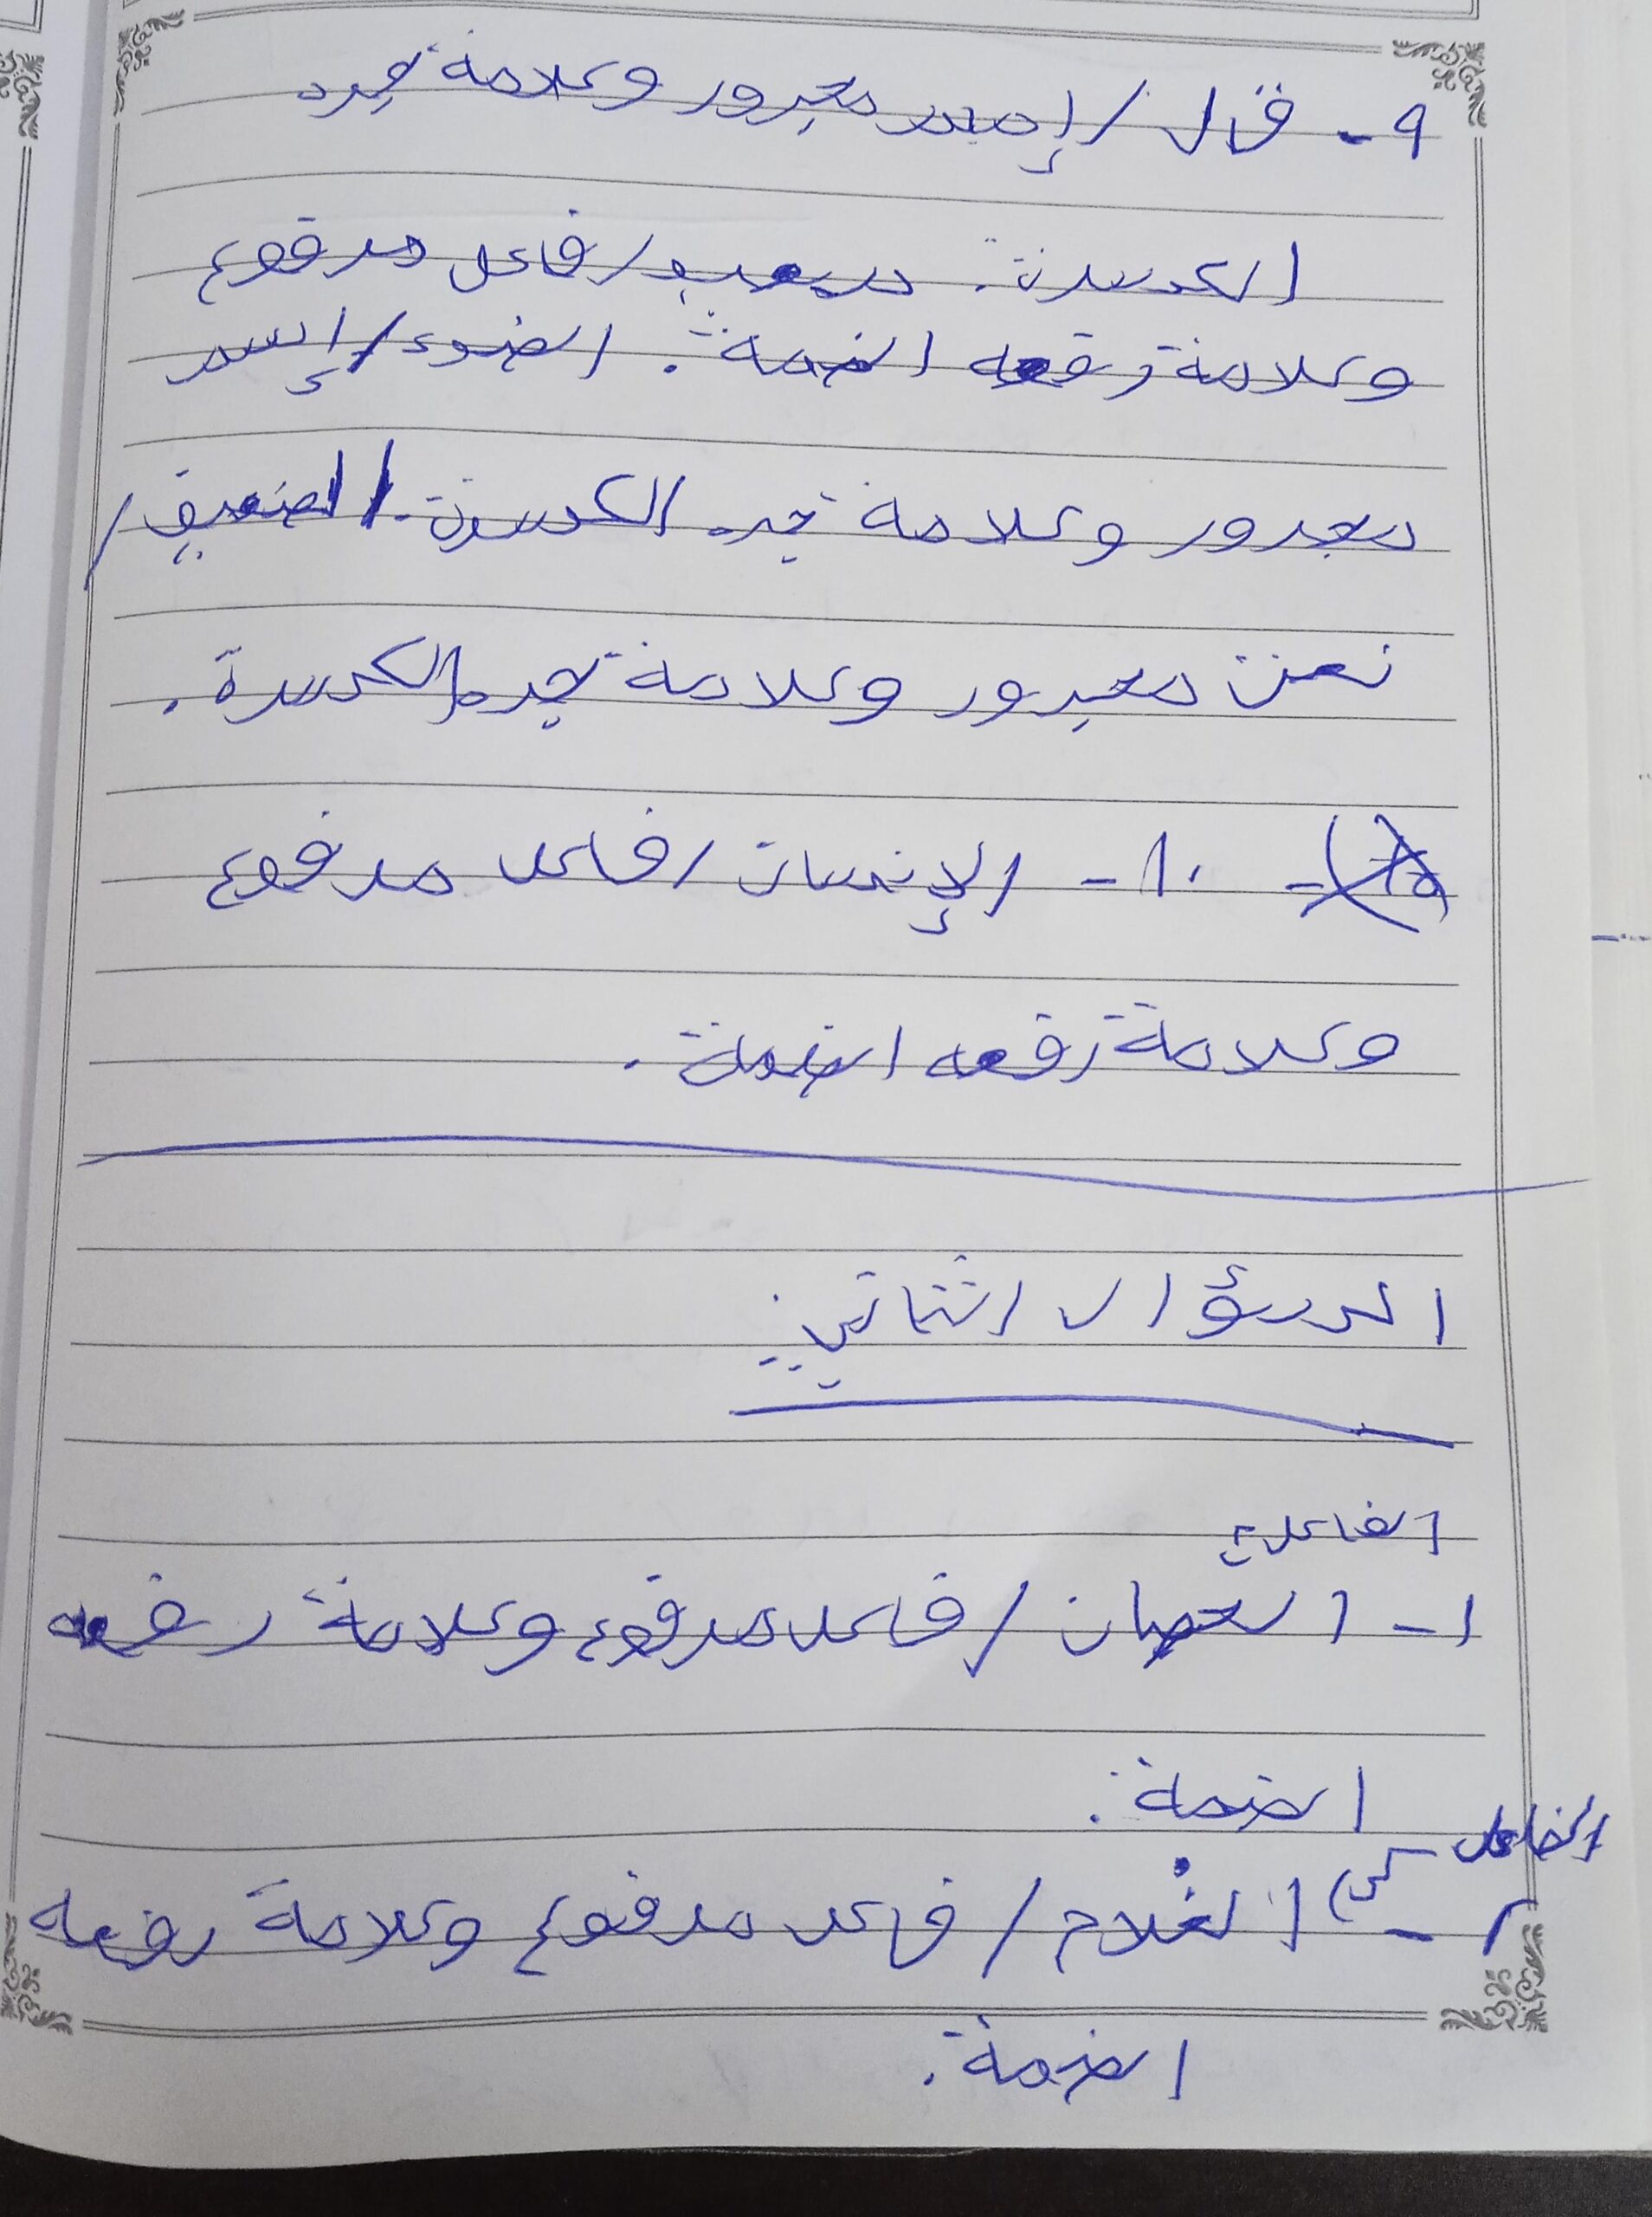 ٩- قال / إسم مجرور وعلامة جره
الكسرة. / فاعل مرفوع
وعلامة رفعه الضمة. الضوء / إسم
مجرور وعلامة جره الكسرة. / الضعيف /
نعت مجرور وعلامة جره الكسرة.
١٠- الإنسان / فاعل مرفوع
وعلامة رفعه الضمة.
السؤال الثاني:
الفاعل:
١- الحصان / فاعل مرفوع وعلامة رفعه
الضمة.
الفاعل
٢- الغلام / فاعل مرفوع وعلامة رفعه
الضمة.